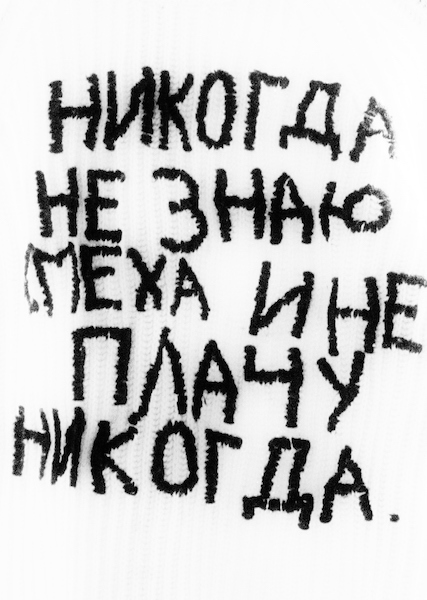 НИКОГДА
НЕ ЗНАЮ
МЕХА И НЕ
ПЛАЧУ
НИКОГДА.